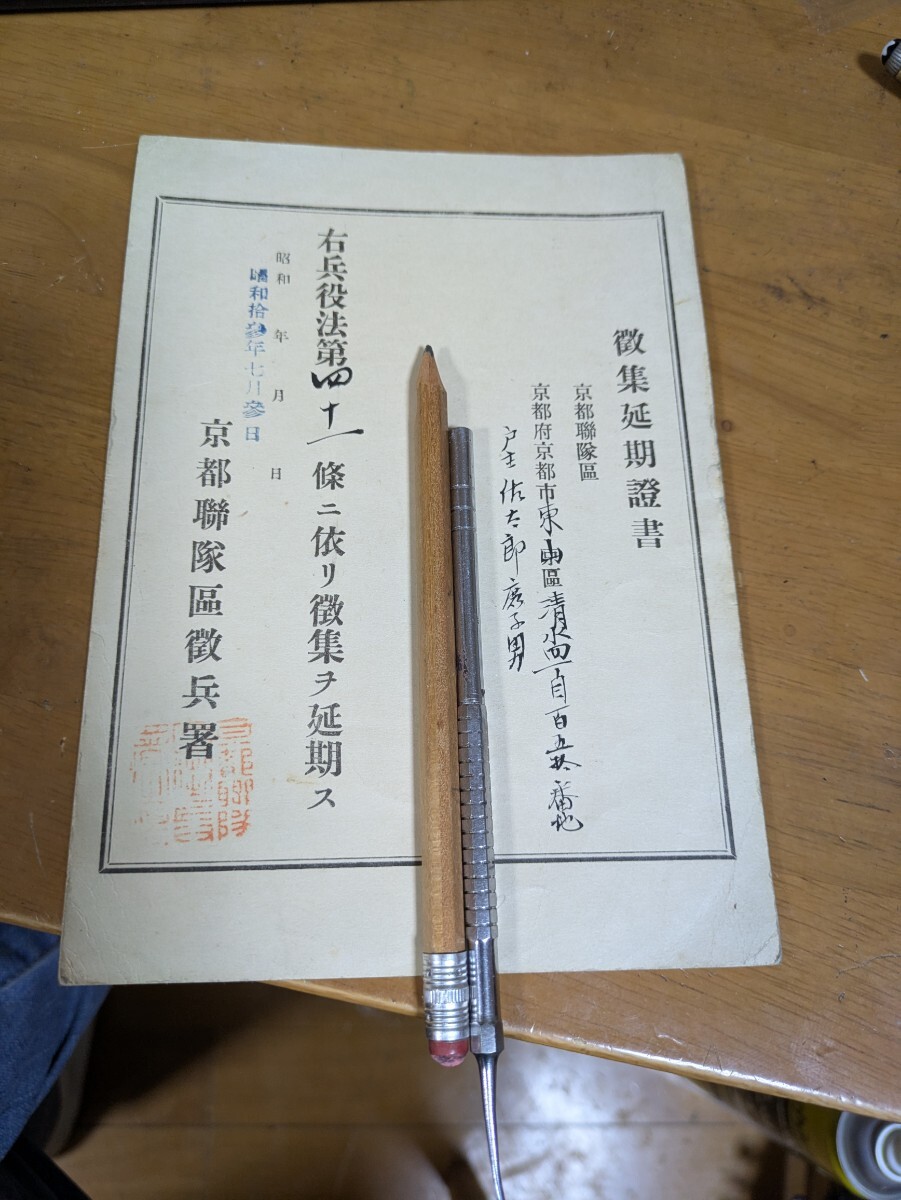 徴集延期證書
京都聯隊區
京都府京都市東山區清水四丁目百五拾番地
戸主佐太郎庶子男
右兵役法第四十一條ニ依リ徴集ヲ延期ス
昭和 年 月 日
昭和拾參年七月參日
京都聯隊區徴兵署